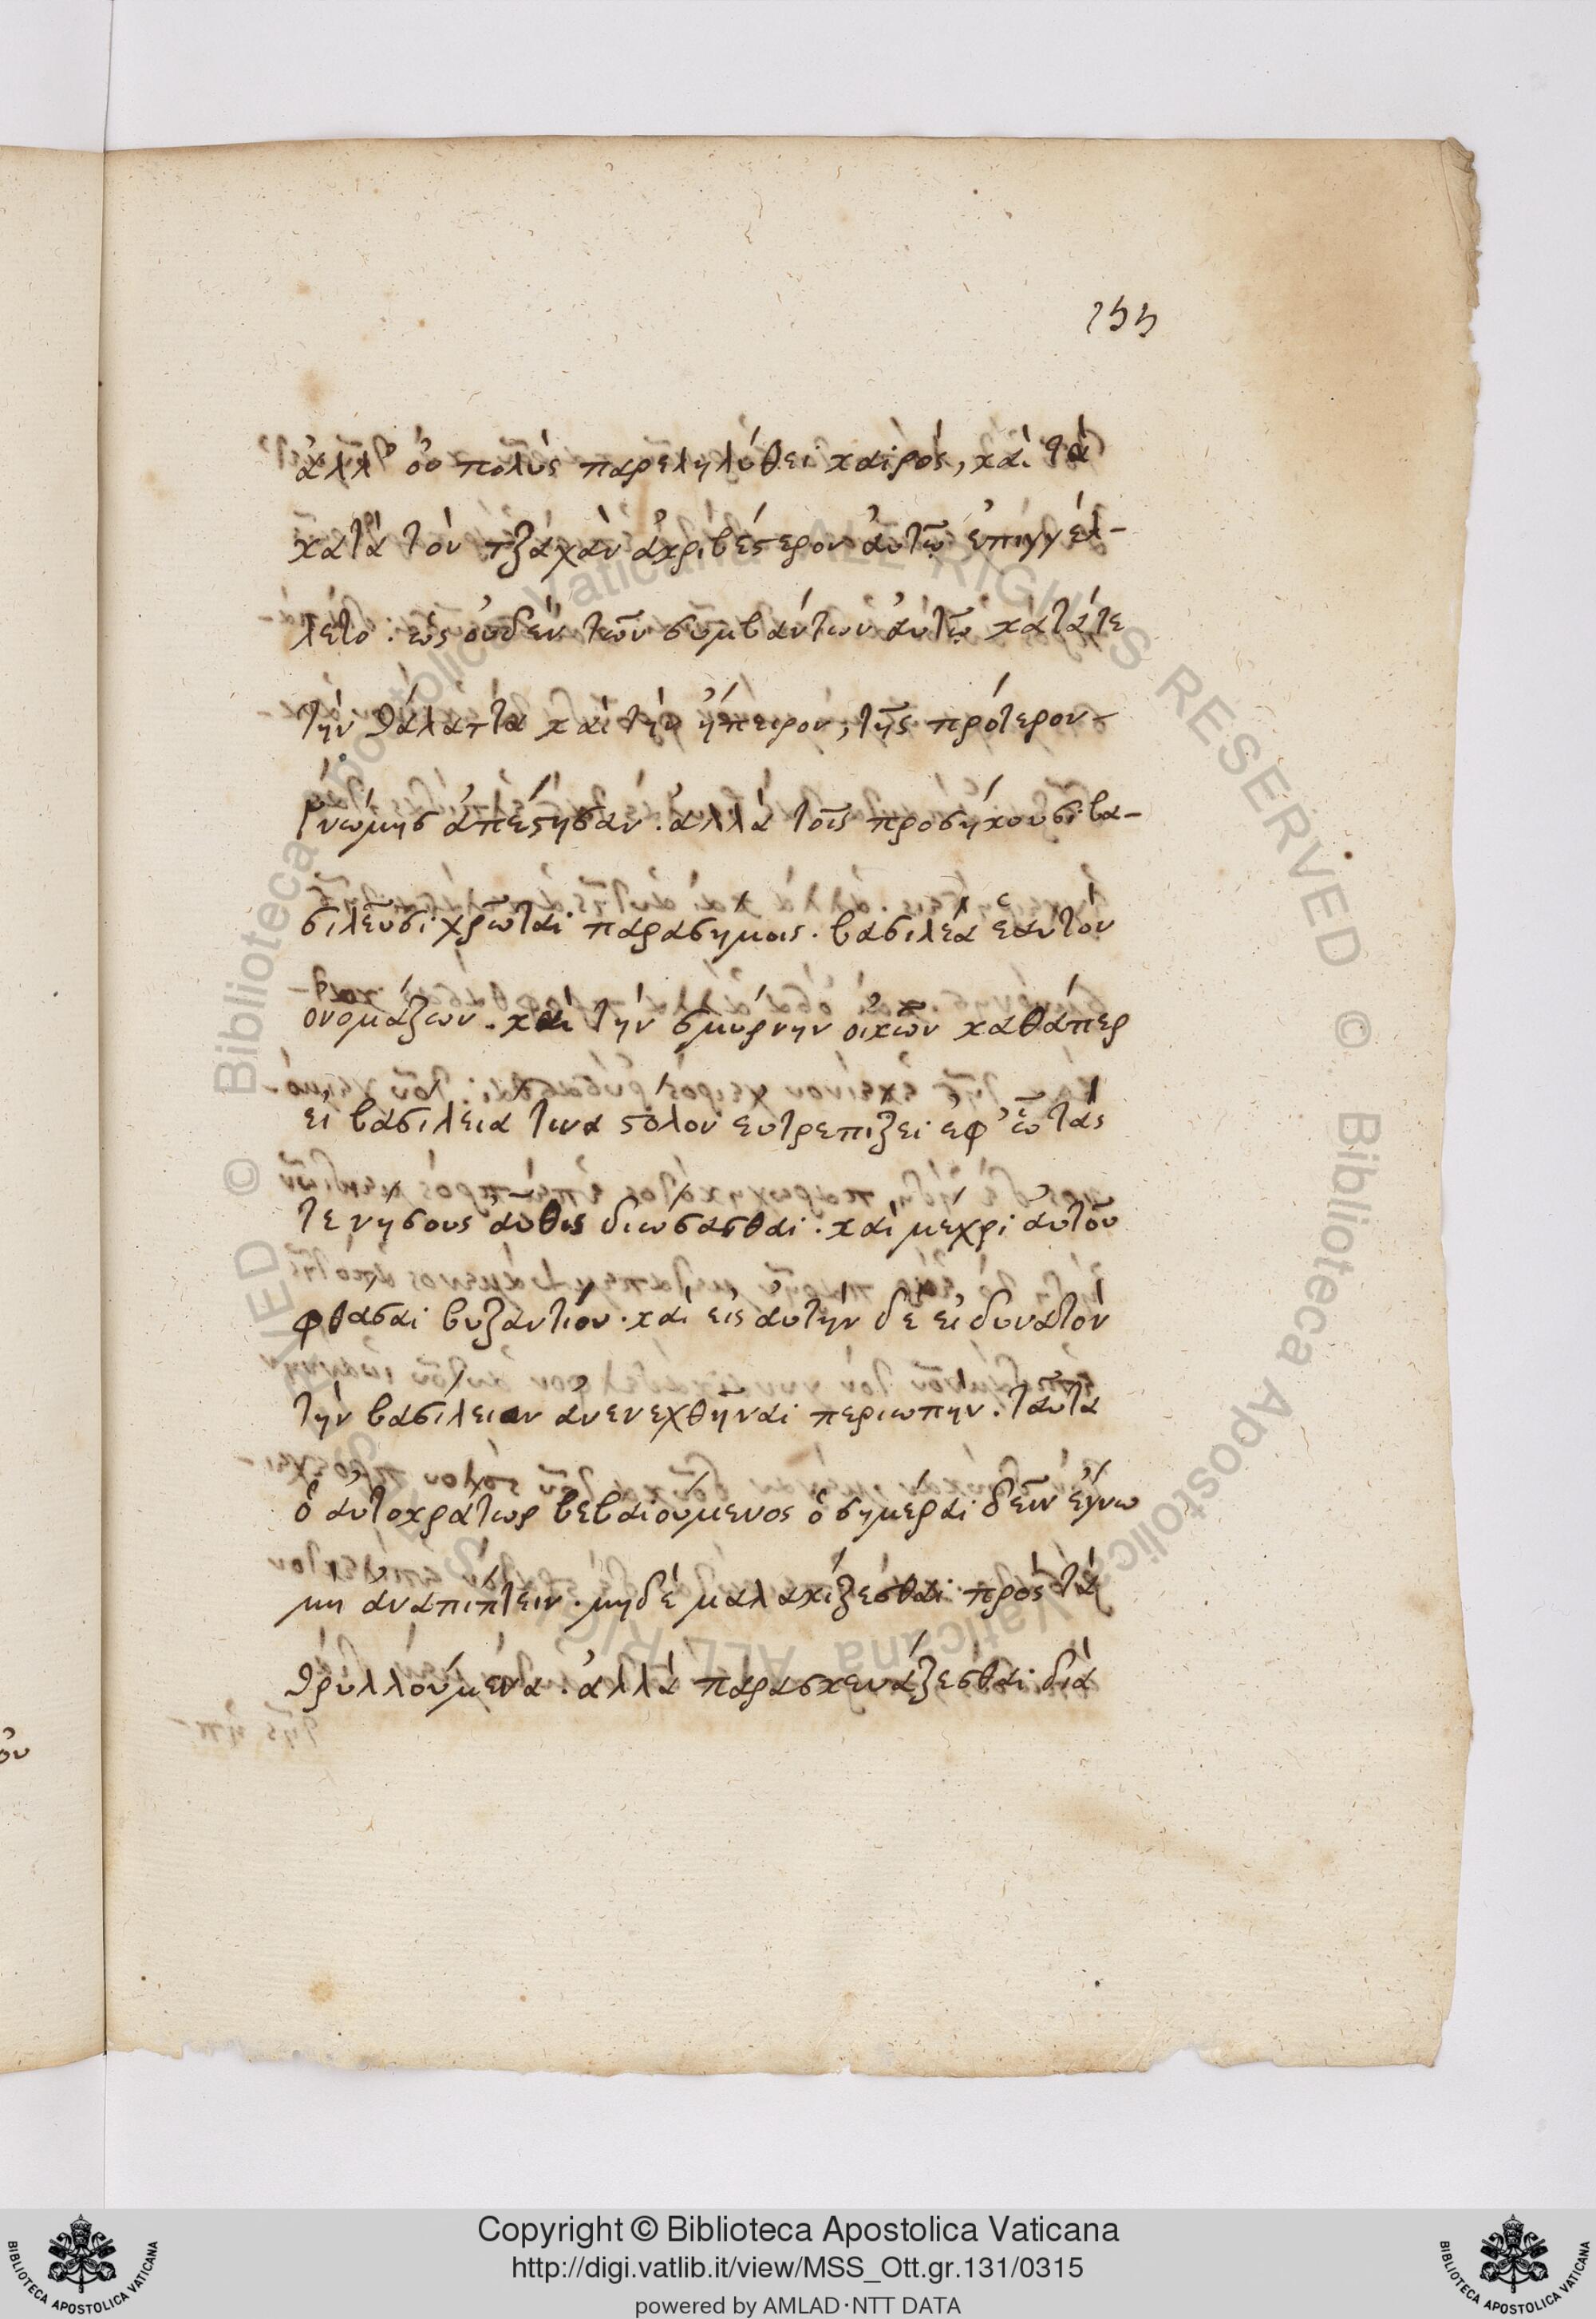 155
ἀλλ' οὐ πολὺς παρεληλύθει καιρὸς, καὶ τὰ
κατὰ τὸν τζαχὰν ἀκριβέστερον ἀυτῷ ἐπηγγέλ-
λετο : ὡς οὐδὲν τῶν συμβάντων ἀυτῷ κατάτε
τὴν θάλαττα καὶ τὴν ἤπειρον, τῆς πρότερον-
γνώμησ ἀπέστησαν . ἀλλὰ τοῖς προσήκουσι βα-
σιλεῦσι χρῶται παρασημοις . βασιλέα ἑαυτὸν
ονομάζων . καὶ τὴν σμύρνην οἰκῶν καθάπερ
εἰ βασίλεια τινα στόλον ευτρεπιζει ἐφ' ῶ τὰς
τε νησους ἀυθις διωσασθαι . καὶ μέχρι ἀυτοῦ
φθασαι βυζαντίου . καὶ εις ἀυτὴν δὲ ει δυνατὸν
τὴν βασίλειον ανενεχθῆναι περιωπην . ταῦτα
ὁ ἀυτοκράτωρ βεβαιούμενος ὁσημέραι δεῖν έγνω
μη ἀναπίπτειν . μηδὲ μαλακίζεσθαι πρὸς τὰ
θρυλλούμενα . ἀλλὰ παρασκευάζεσθαι διὰ
ὸν
Copyright © Biblioteca Apostolica Vaticana
http://digi.vatlib.it/view/MSS_Ott.gr.131/0315
powered by AMLAD·NTT DATA
BIBLIOTECA APOSTOLICA VATICANA
BIBLIOTECA APOSTOLICA VATICANA